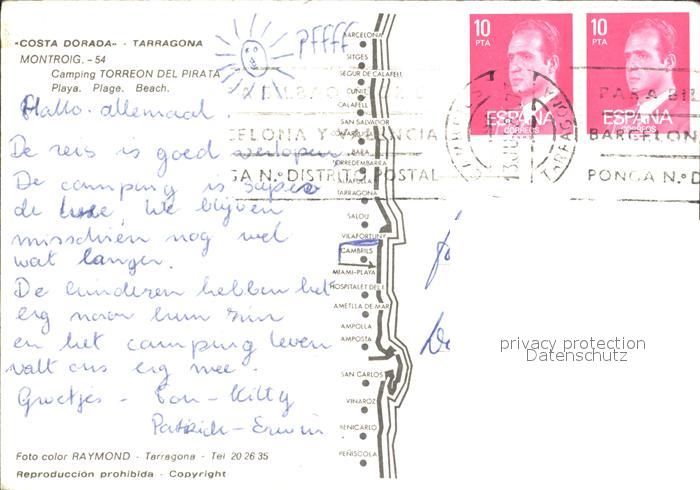 "COSTA DORADA" - TARRAGONA
MONTROIG. - 54
Camping TORREON DEL PIRATA
Playa. Plage. Beach.
pffff
Hallo allemaal.
De reis is goed verlopen,
De camping is super
de luxe, We blijven
misschien nog wel
wat langer.
De kinderen hebben het
erg naar hun zin
en het camping leven
valt ons erg mee.
Groetjes - Ton - Kitty
Patrick - Erwin
Foto color RAYMOND - Tarragona - Tel 20 26 35
Reproducción prohibida - Copyright
BARCELONA
SITGES
SEGUR DE CALAFELL
CUNIT
CALAFELL
SAN SALVADOR
TORREDEMBARRA
TARRAGONA
SALOU
VILAFORTUNY
CAMBRILS
MIAMI-PLAYA
HOSPITALET DEL I.
AMETLLA DE MAR
AMPOLLA
AMPOSTA
SAN CARLOS
VINAROZ
BENICARLO
PEÑISCOLA
10 PTA
ESPAÑA
CORREOS
10 PTA
ESPAÑA
CORREOS
BARCELONA Y VALENCIA
PONGA N.º DISTRITO POSTAL
PARA BIL
BARCELON
PONGA N.º D
privacy protection
Datenschutz